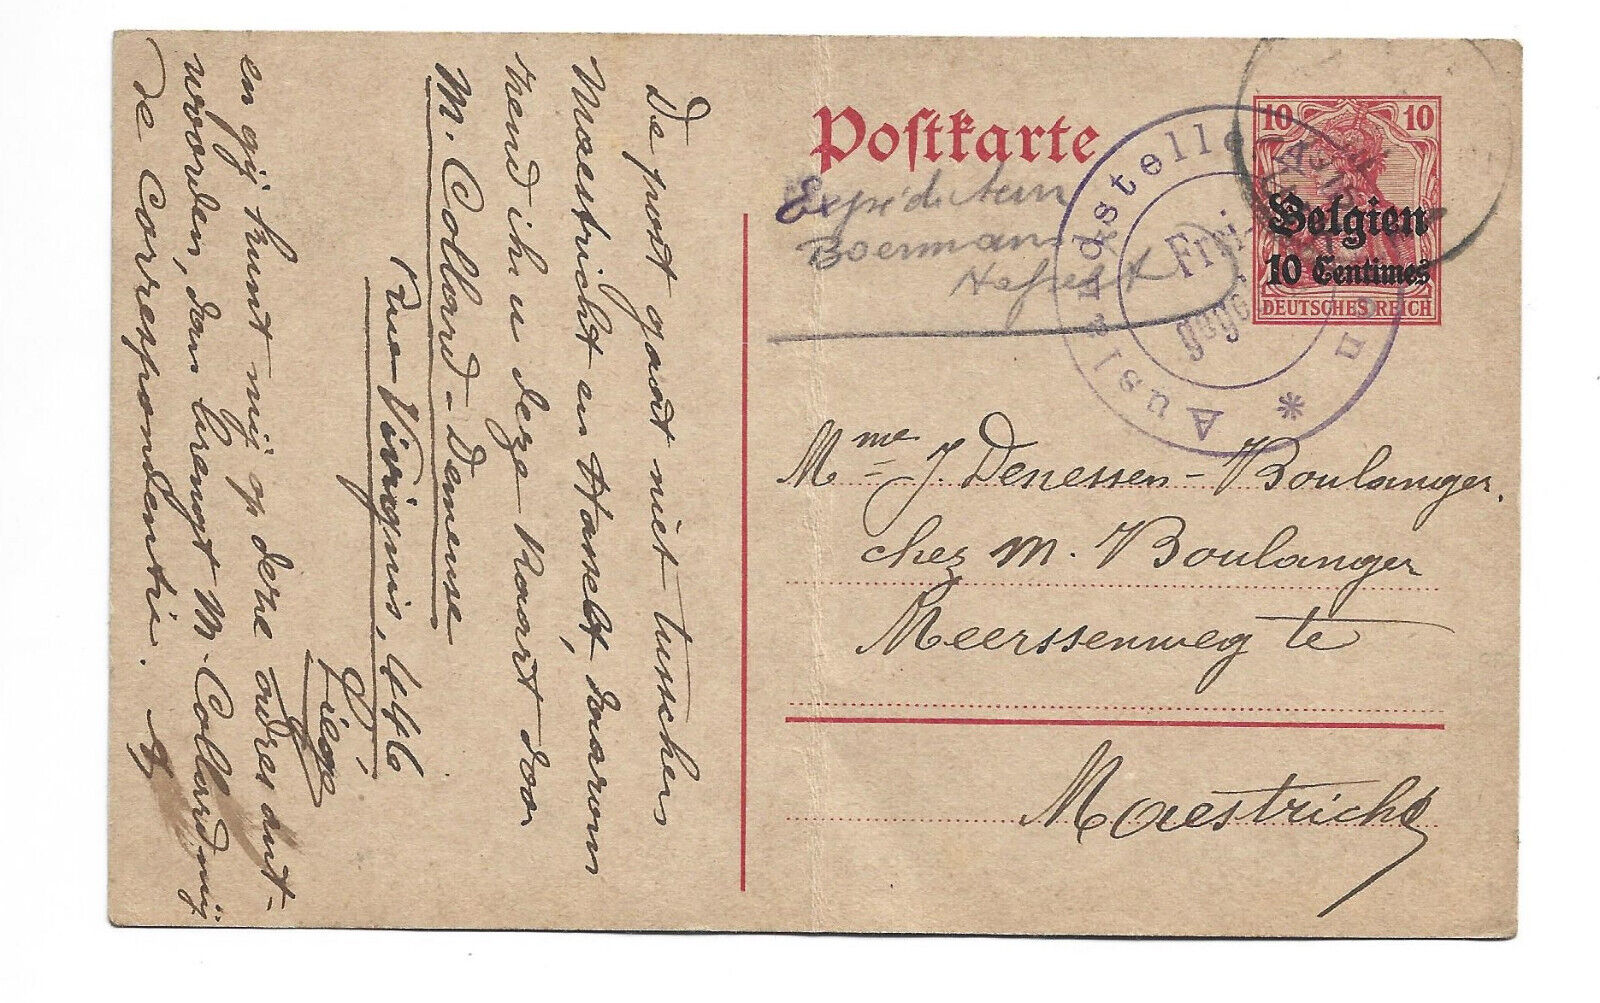 Postkarte
10 10
Belgien
10 Centimes
DEUTSCHES REICH
Auslandstelle Aachen *
Frei-
gege
Boermans
Mme J. Denessen-Boulanger.
chez M. Boulanger
Meerssenweg te
Maestricht
De post gaat niet tusschen
Maestricht en Hasselt, daarom
zend ik u deze Kaart door
M. Collard-Demeuse
Rue Vivignis, 446
Liege
en gij kunt mij op deze adres ant-
woorden, dan brengt M. Collard mij
de Correspondentie.